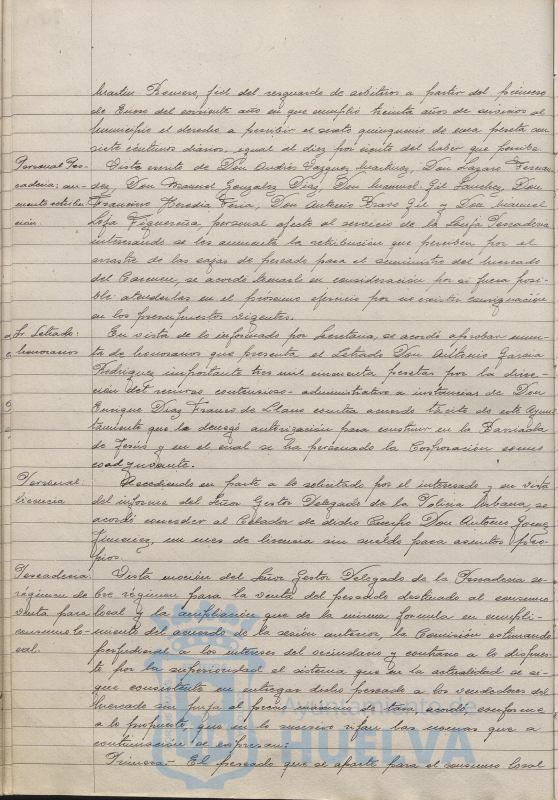 Martin Romero, fiel del resguardo de arbitrios a partir del primero
de Enero del corriente año en que cumplió treinta años de servicios al
Municipio el derecho a percibir el sexto quinquenio de una peseta con
siete céntimos diarios, igual al diez por ciento del haber que percibe.
Personal Pes-
cadería: au-
mento retribu-
ción.
Vista escrito de Don Andrés Vazquez Martinez, Don Lazaro Fernan-
dez, Don Manuel Gonzalez Diaz, Don Manuel Gil Sanchez, Don
Francisco Heredia Feria, Don Antonio Bravo Gil y Don Manuel
Figuereña, personal afecto al servicio de la Lonja Pescadería
interesando se les aumente la retribución que perciben por el
arrastre de las cajas de pescado para el suministro del mercado
del Carmen, se acordó tomarlo en consideración por si fuera posi-
ble atenderlas en el proximo ejercicio por no existir consignación
en los presupuestos vigentes.
Sr. Letrado:
honorarios
En vista de lo informado por Secretaría, se acordó aprobar minu-
ta de honorarios que presenta el Letrado Don Antonio Garcia
Rodriguez importante tres mil cincuenta pesetas por la direc-
ción del recurso contencioso-administrativo a instancias de Don
Enrique Diaz Franco de Llano contra acuerdo tácito de este Ayun-
tamiento que le denegó autorización para construir en la Barriada
de Jesús y en el cual se ha personado la Corporación como
coadyuvante.
Personal:
licencia
Accediendo en parte a lo solicitado por el interesado y en vista
del informe del Señor Gestor Delegado de la Policia Urbana, se
acordó conceder al Celador de dicho Cuerpo Don Antonio
Jimenez, un mes de licencia sin sueldo para asuntos pro-
pios.
Pescadería:
régimen de
venta para
consumo lo-
cal.
Vista moción del Señor Gestor Delegado de la Pescadería so-
bre régimen para la venta del pescado destinado al consumo
local y la ampliación que de la misma formula en cumpli-
miento del acuerdo de la sesión anterior, la Comisión estimando
perjudicial a los intereses del vecindario y contrario a lo dispues-
to por la superioridad el sistema que en la actualidad se si-
gue consistente en entregar dicho pescado a los vendedores del
Mercado sin puja al precio máximo de tasa, acordó, conforme
a lo propuesto, que en lo sucesivo rijan las normas que a
continuación se expresan:
Primera.- El pescado que se aparte para el consumo local
Ayuntamiento de
HUELVA